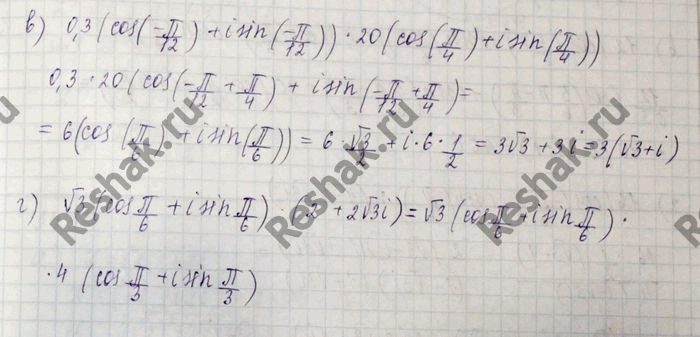 в) 0,3(cos(-π/12) + i sin(-π/12)) · 20(cos(π/4) + i sin(π/4))
0,3 · 20(cos(-π/12 + π/4) + i sin(-π/12 + π/4) =
= 6(cos(π/6) + i sin(π/6)) = 6 · √3/2 + i · 6 · 1/2 = 3√3 + 3i = 3(√3 + i)
г) √3(cos π/6 + i sin π/6) · (2 + 2√3i) = √3(cos π/6 + i sin π/6) ·
· 4 (cos π/3 + i sin π/3)
Reshak.ru
Reshak.ru
Reshak.ru
Reshak.ru
Reshak.ru
Reshak.ru